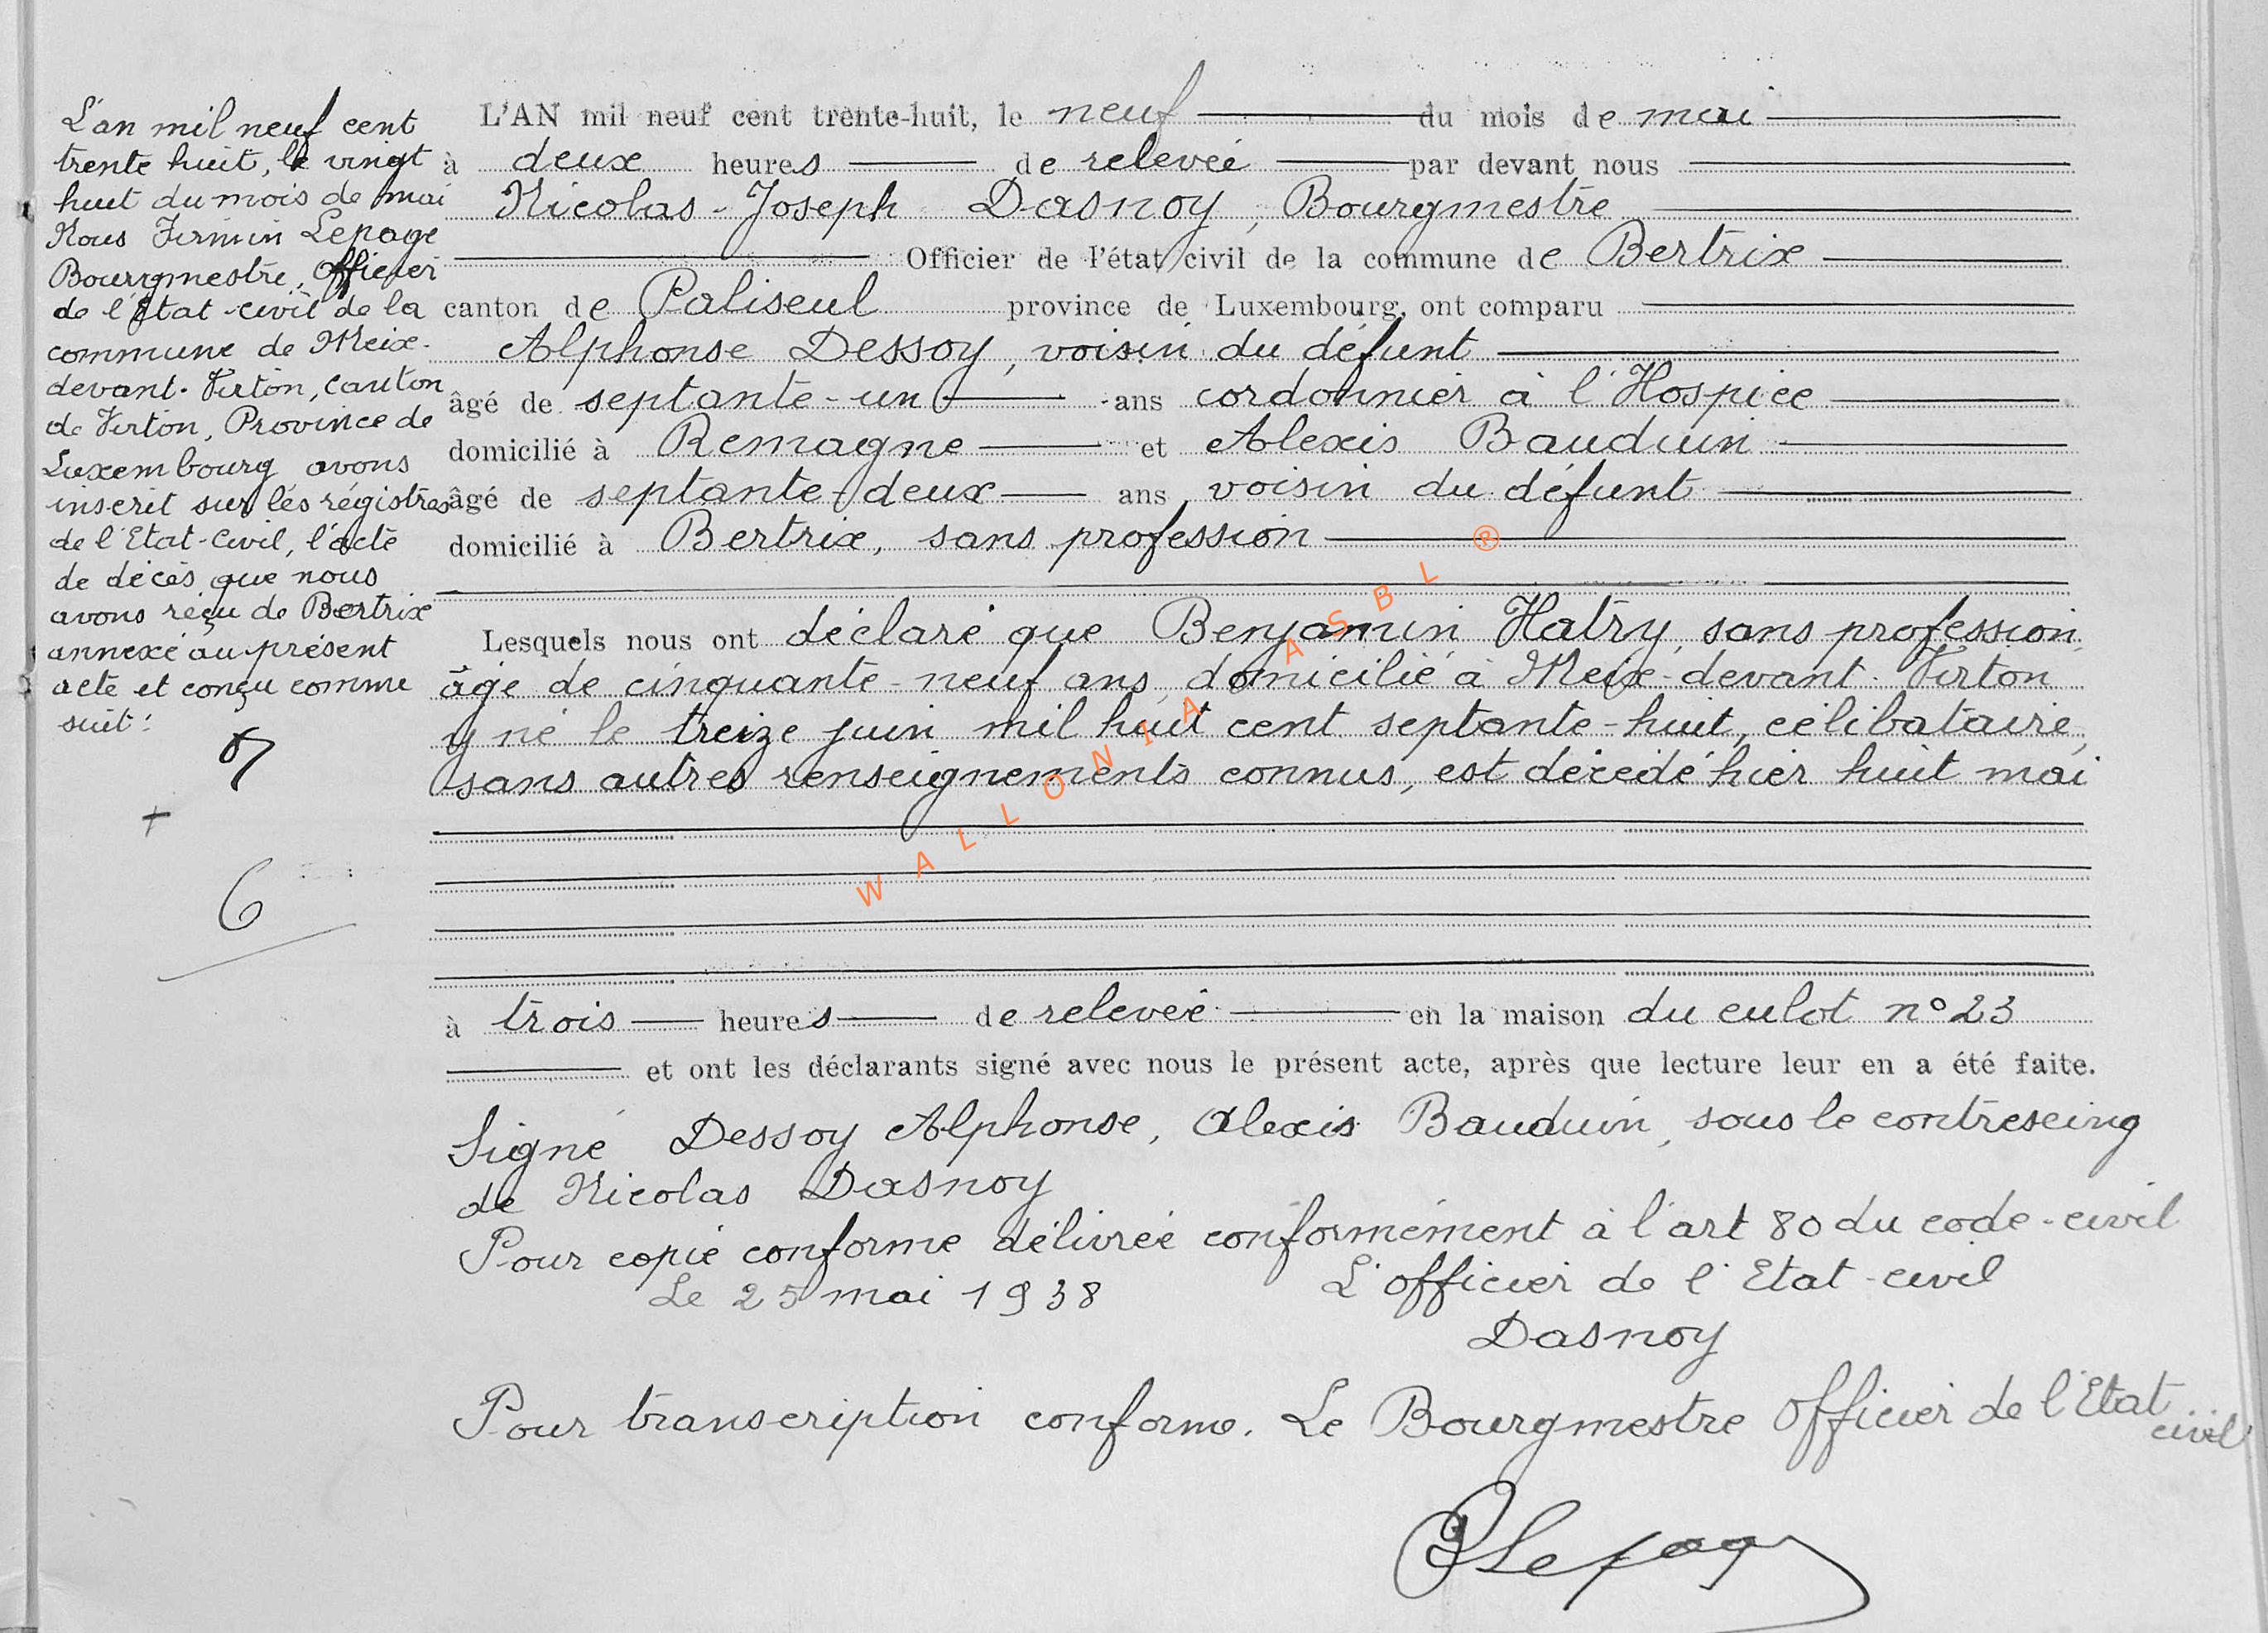 L'an mil neuf cent
trente huit, le vingt
huit du mois de mai
Nous Firmin Lepage
Bourgmestre, Officier
de l'Etat-civil de la
commune de Meix-
devant-Virton, canton
de Virton, Province de
Luxembourg avons
inscrit sur les régistres
de l'Etat-Civil, l'acte
de décès que nous
avons réçu de Bertrix
annexé au présent
acte et conçu comme
suit:
6
L'AN mil neuf cent trente-huit, le neuf du mois de mai
à deux heures de relevée par devant nous
Nicolas-Joseph Dasnoy, Bourgmestre
Officier de l'état civil de la commune de Bertrix
canton de Paliseul province de Luxembourg, ont comparu
Alphonse Dessoy, voisin du défunt
âgé de septante-un ans cordonnier à l'Hospice
domicilié à Remagne et Alexis Bauduin
âgé de septante-deux ans, voisin du défunt
domicilié à Bertrix, sans profession
Lesquels nous ont déclaré que Benjamin Hatry, sans profession,
âgé de cinquante-neuf ans, domicilié à Meix-devant-Virton
y né le treize juin mil huit cent septante-huit, célibataire,
sans autres renseignements connus, est décédé hier huit mai
à trois heures de relevée en la maison du culot n° 23
et ont les déclarants signé avec nous le présent acte, après que lecture leur en a été faite.
Signé Dessoy Alphonse, Alexis Bauduin, sous le contreseing
de Nicolas Dasnoy
Pour copie conforme délivrée conformément à l'art 80 du code-civil
Le 25 mai 1938 L'officier de l'Etat-civil
Dasnoy
Pour transcription conforme. Le Bourgmestre Officier de l'Etat
civil
Lepage
WALLONIA ASBL ®